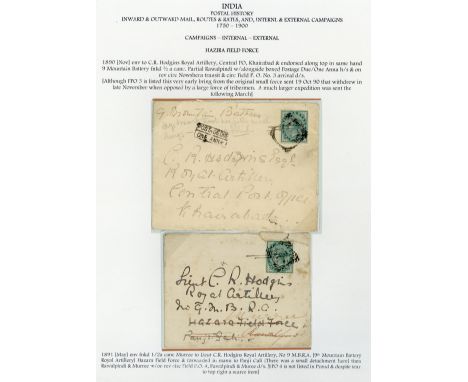 INDIA
POSTAL HISTORY
INWARD & OUTWARD MAIL, ROUTES & RATES, AND, INTERNL & EXTERNAL CAMPAIGNS
1750 – 1900
CAMPAIGNS – INTERNAL – EXTERNAL
HAZIRA FIELD FORCE
1890 [Nov] env to C.R. Hodgins Royal Artillery, Central P.O, Khairabad & endorsed along top in same hand
9 Mountain Battery frnkd ½ a canc. Partial Rawalpindi w/alongside boxed Postage Due/One Anna h/s & on
rev circ Nowshera transit & circ Field P. O. No. 3 arrival d/s.
[Although FPO 3 is listed this very early bring from the original small force sent 19 Oct 90 that withdrew in
late November when opposed by a large force of tribermen. A much larger expedition was sent the
following March]
9 Mountain Battery
POSTAGE DUE
ONE ANNA
C. R. Hodgins Esqr
Royal Artillery
Central Post Office
Khairabad
Lieut C. R. Hodgins
Royal Artillery
No 9. M. B. R. A.
Hazara Field Force
Panji Gali
1891 [May] env frnkd 1/2a canc Murree to Lieut C.R. Hodgins Royal Artillery, No 9 M.B.R.A. [9th Mountain Battery
Royal Artillery] Hazara Field Force & forwarded in manu to Panji Gali [There was a small detachment here] then
Rawalpindi & Murree w/on rev circ Field P.O. A, Rawalpindi & Murree d/s. [FPO A is not listed in Pistal & despite tear
to top right a scarce item]